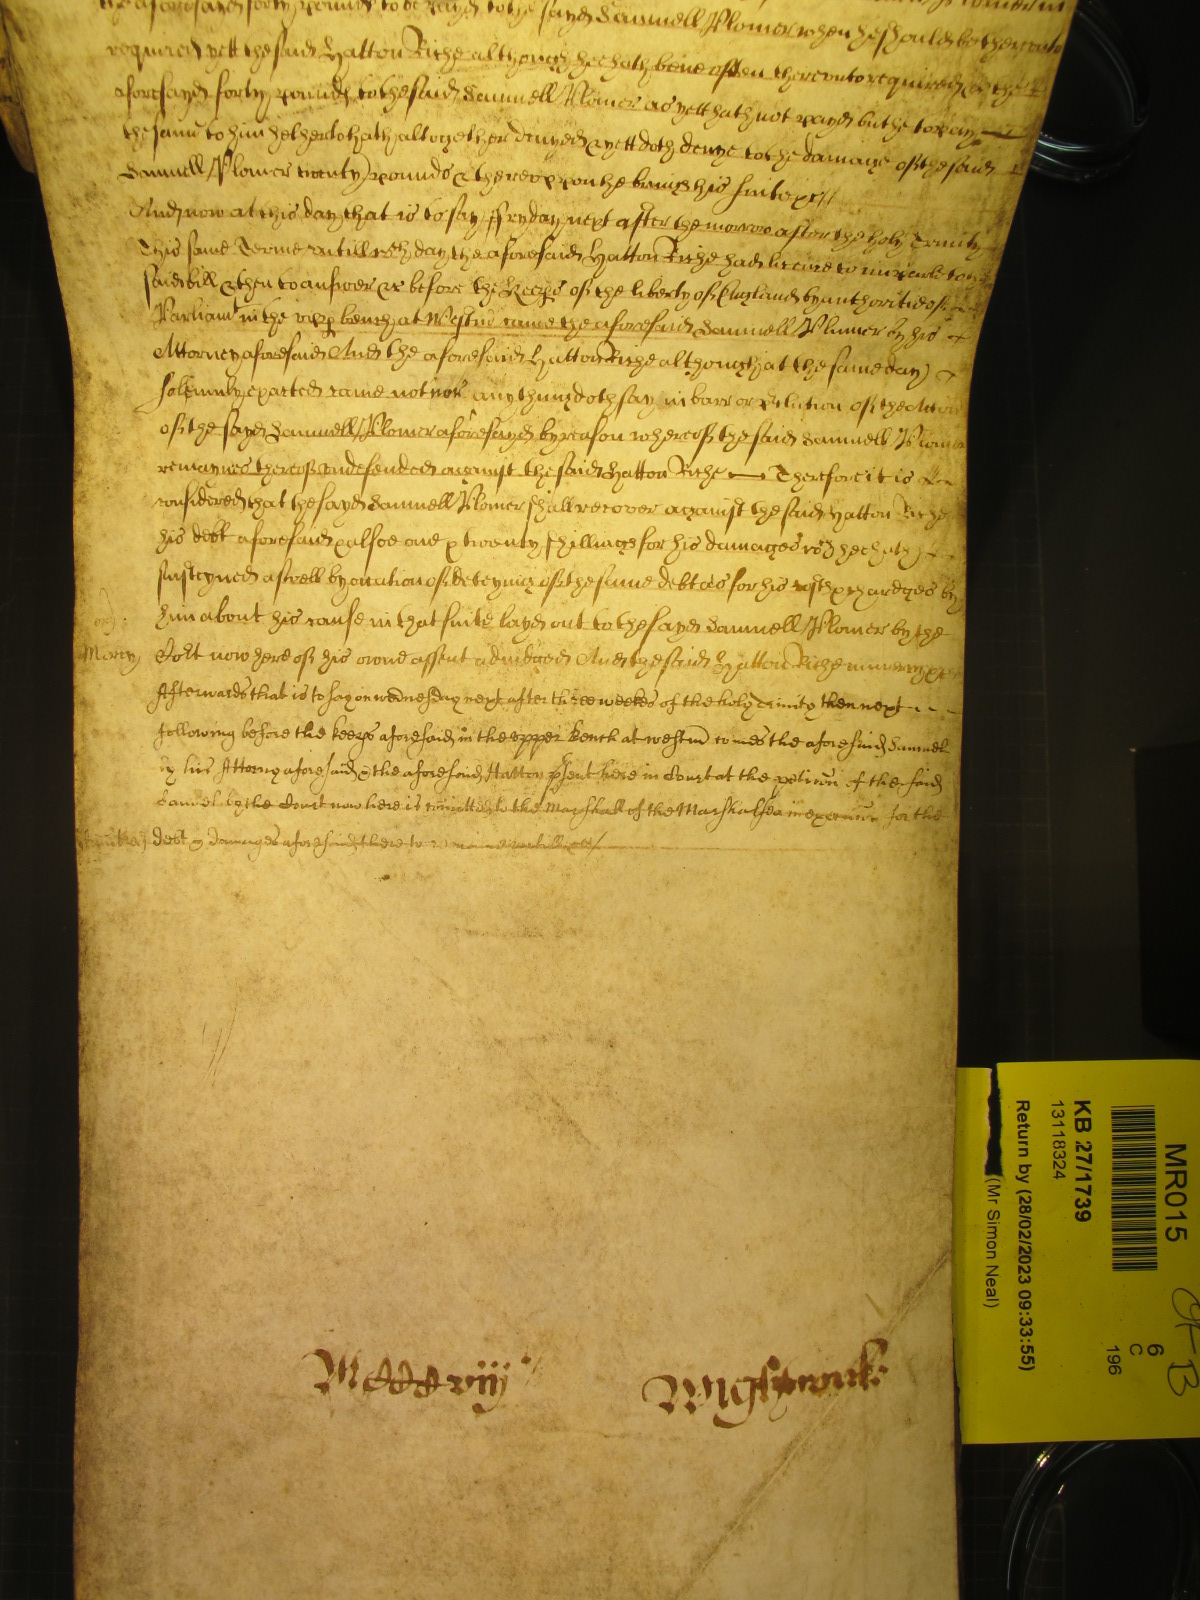 the aforesayd forty pounds to be payd to the sayd Samuell Plomer when he should be thereunto
required yett the said Hatton Riche although hee hath bene often thereunto required & the
aforesayd forty pounds to the said Samuell Plomer as yett hath not payd but he to pay
the same to him hetherto hath altogether denyed & yett doth denye to the damage of the said
Samuell Plomer twenty pounds & thereoppon he brings his suite &c
And now at this day that is to say ffryday next after the morrow after the holy Trinity
This same Terme untill wch day the aforesaid Hatton Riche had licence to imparle to the
said bill & then to answer &c before the Keeps of the liberty of England by authoritie of
Parliamt in the upp bench at Westm came the aforesaid Samuell Plumer by his
Attorney aforesaid And the aforesaid Hatton Riche although at the same day
solemnly exacted came not nor any thing doth say in barr or
of the sayd Samuell Plomer aforesayd by reason whereof the said Samuell Plomer
remaynes thereof undefended against the said Hatton Riche Therefore it is
considered that the sayd Samuell Plomer shall recover against the said Hatton Riche
his debt aforesaid & alsoe one & twenty shillings for his damages wch hee hath
susteyned aswell by occation of deteyning of the same debt as for his costs & chardges by
him about his cause in that suite layd out to the sayd Samuell Plomer by the
Mercy Cort now here of his owne assent adiudged And the said Hatton Riche in mercy &c
Afterwards that is to say on wednesday next after three weekes of the holy Trinity then next
following before the keeps aforesaid in the upper bench at westm comes the aforesaid Samuel
by his Attorny aforesaid & the aforesaid Hatton psent here in Court at the peticon of the said
Samuel by the Court now here is comitted to the Marshall of the Marshalsea in execucon for the
Comitted debt & damages aforesaid there to remaine untill &c
Mccccviij
Wightwicke
MR015
KB 27/1739
13118324
Return by (28/02/2023 09:33:55)
(Mr Simon Neal)
6
C
196